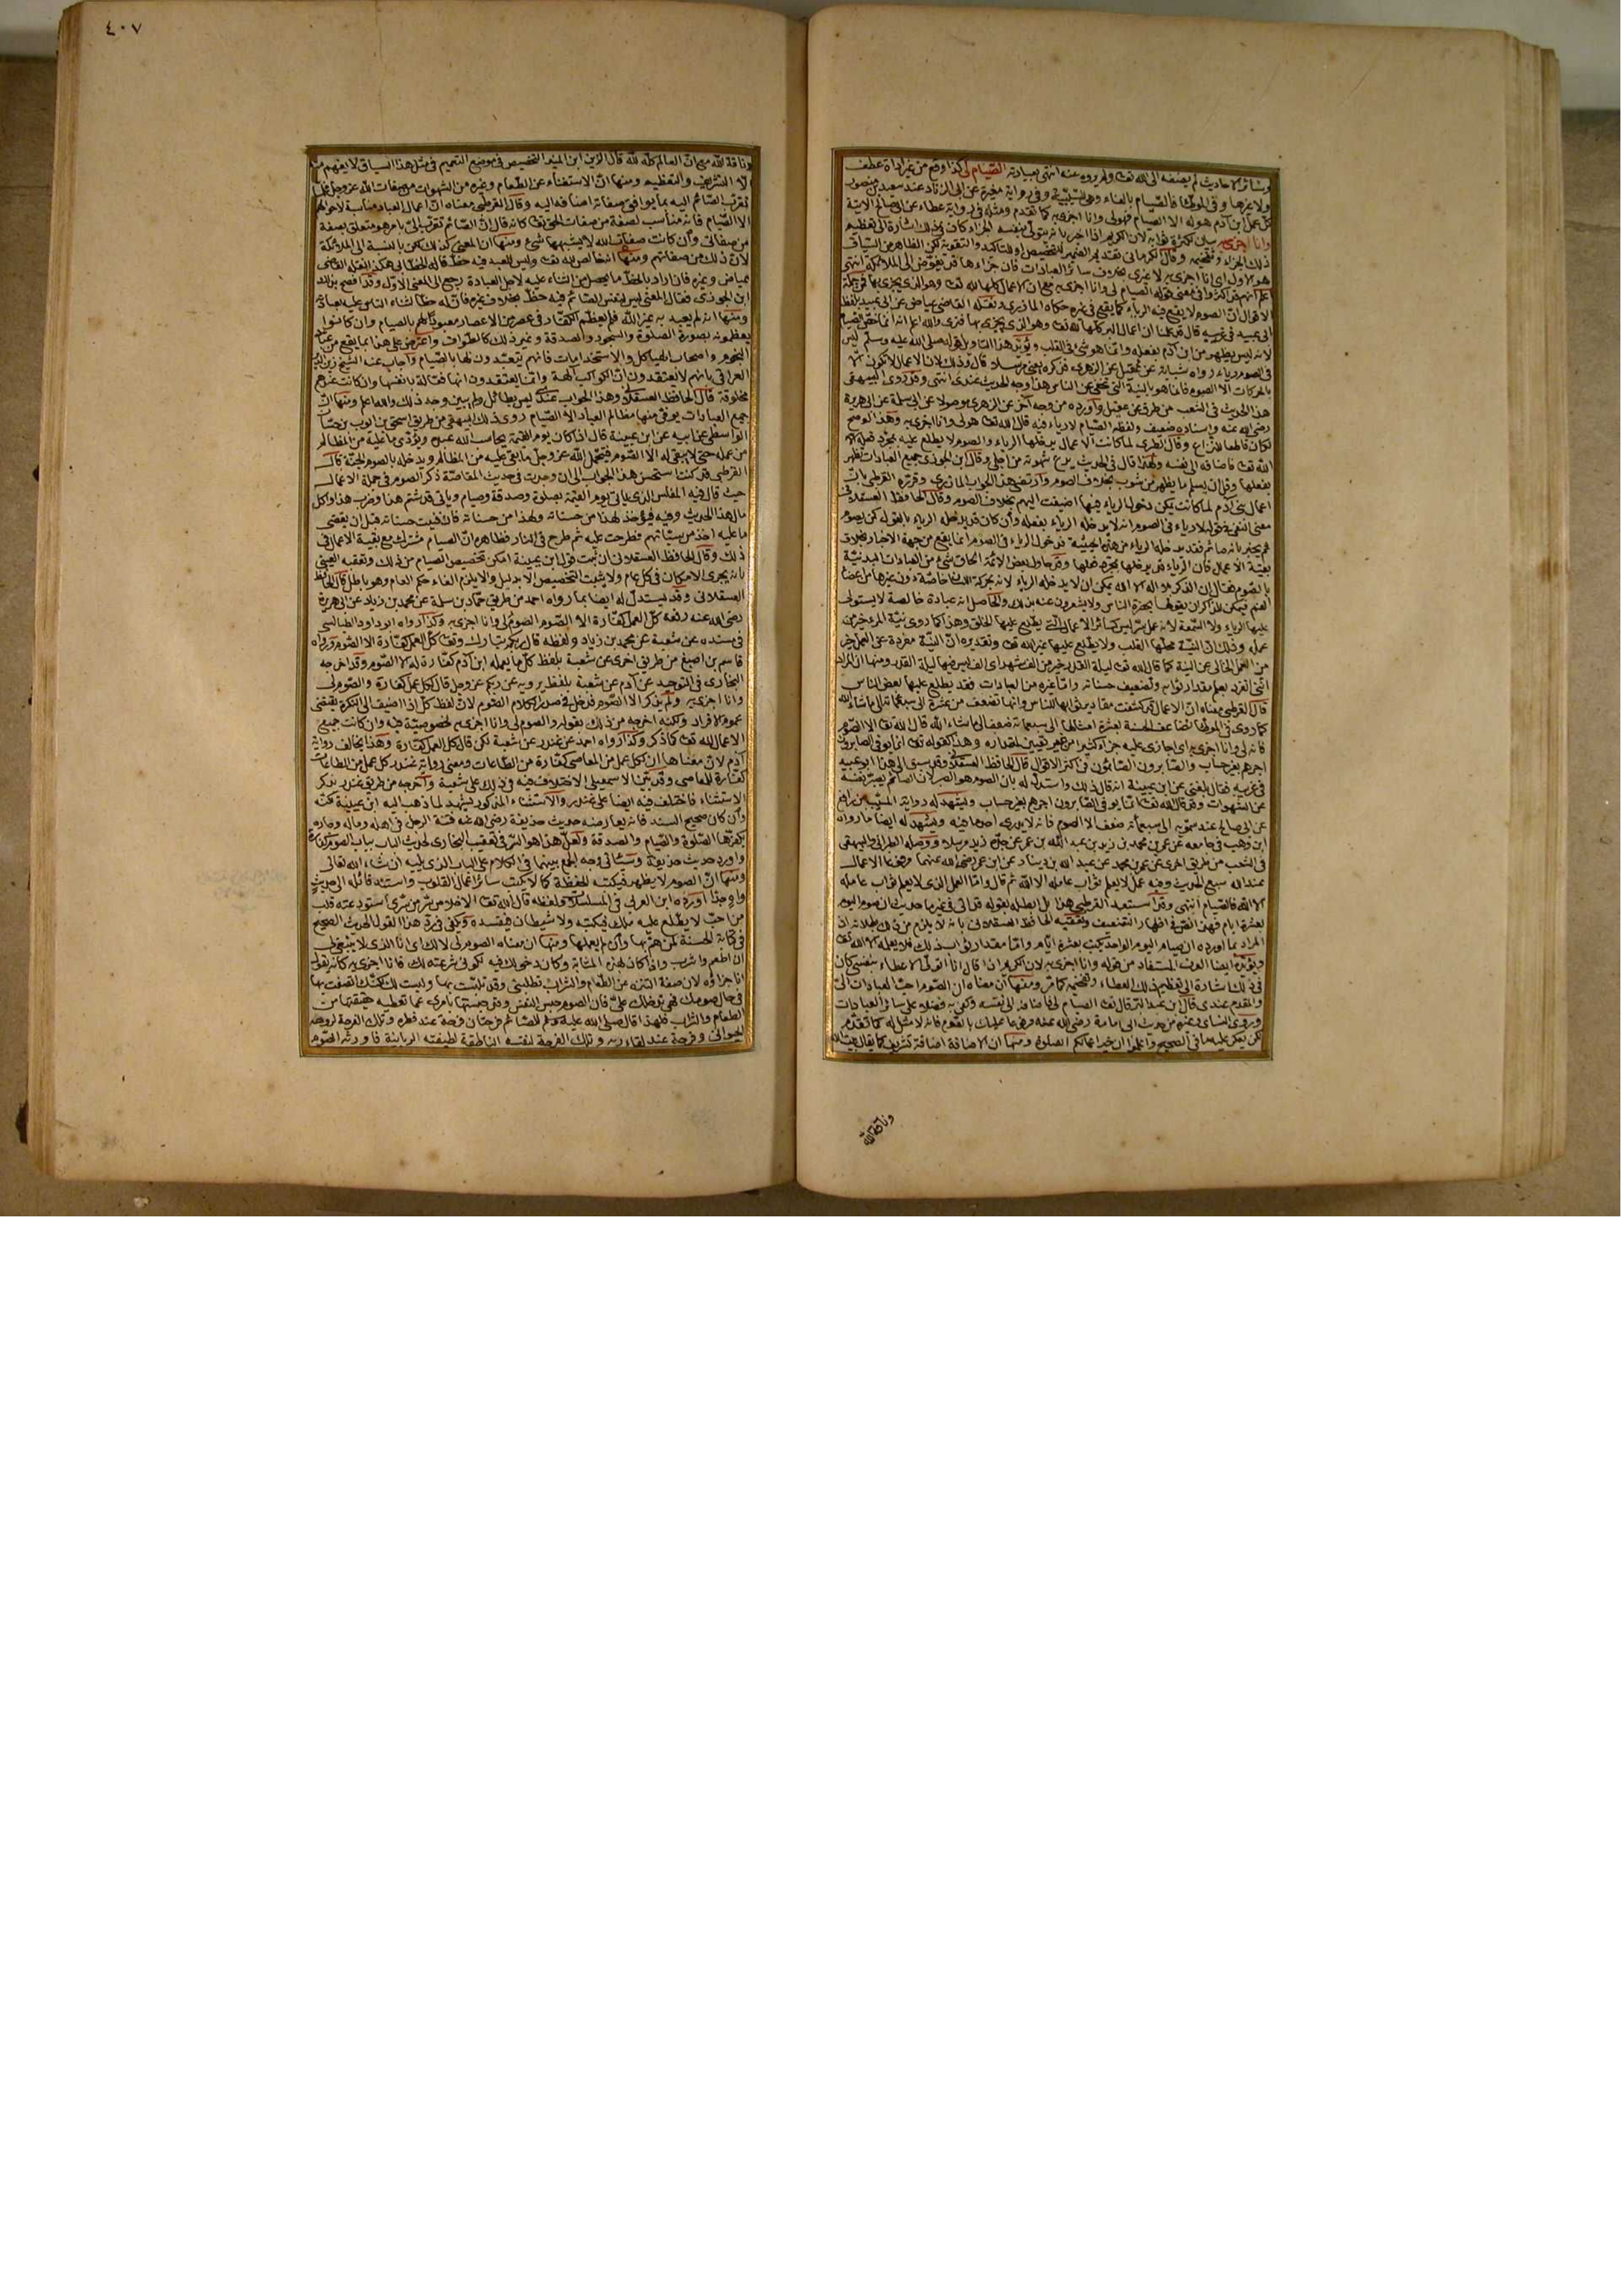 ٤٠٧
وسائر الاحاديث لم يضفه الى الله تعا ولم يروه عنه انتهى بعبارته الصيام لى كذا وقع من غير اداة عطف
ولا غيرها وفى الموطأ فالصيام بالفاء وهى للسببية وفى رواية مغيرة عن ابى الزناد عند سعيد بن منصور
كل عمل ابن آدم هو له الا الصيام فهو لى وانا اجزى به كما تقدم ومثله فى رواية عطاء عن ابى صالح الآتية
وانا اجزى به بيان لكثرة ثوابه لان الكريم اذا اخبر بانه يتولى بنفسه الجزاء كان فى ذلك اشارة الى تعظيم
ذلك الجزاء وتفخيمه وقال الكرمانى تقديم الضمير للتخصيص او للتاكيد والتقوية لكن الظاهر من السياق
هو الاول اى انا اجزى به لا غيرى بخلاف سائر العبادات فان جزاءها قد يفوض الى الملائكة انتهى
الاقوال ان الصوم لا يقع فيه الرياء كما يقع فى غيره حكاه المازرى ونقله القاضى عياض عن ابى عبيد بلفظ
لانه ليس يظهر من ابن آدم بفعله وانما هو شئ فى القلب ويؤيد هذا التاويل قوله صلى الله عليه وسلم ليس
فى الصوم رياء رواه شبابة عن عقيل عن الزهرى فذكره يعنى مرسلا قال وذلك لان الاعمال لا تكون الا
بالحركات الا الصوم فانما هو بالنية التى تخفى عن الناس هذا وجه الحديث عندى انتهى وقد روى البيهقى
هذا الحديث فى الشعب من طريق عن عقيل واورده من وجه آخر عن الزهرى موصولا عن ابى سلمة عن ابى هريرة
رضى الله عنه واسناده ضعيف ولفظه الصيام لا رياء فيه قال الله تعا هو لى وانا اجزى به وهذا لو صح
لكان قاطعا للنزاع وقال القرطبى لما كانت الاعمال يدخلها الرياء والصوم لا يطلع عليه بمجرد فعله الا
الله تعا فاضافه الى نفسه ولهذا قال فى الحديث يدع شهوته من اجلى وقال ابن الجوزى جميع العبادات تظهر
بفعلها وقل ان يسلم ما يظهر من شوب بخلاف الصوم وارتضى هذا الجواب المازرى وقرره القرطبى بان
اعمال بنى آدم لما كانت يمكن دخول الرياء فيها اضيفت اليهم بخلاف الصوم وقال الحافظ العسقلانى
معنى النفى فى قوله لا رياء فى الصوم انه لا يدخله الرياء بفعله وان كان قد يدخله الرياء بالقول كمن يصوم
ثم يخبر بانه صائم فقد يدخله الرياء من هذه الحيثية فدخول الرياء فى الصوم انما يقع من جهة الاخبار بخلاف
بقية الاعمال فان الرياء قد يدخلها بمجرد فعلها وقد حاول بعض الائمة الحاق شئ من العبادات البدنية
بالصوم فقال ان الذكر بلا اله الا الله يمكن ان لا يدخله الرياء لانه بحركة اللسان خاصة دون غيرها من اعضاء
الفم فيمكن للذاكر ان يقولها بحضرة الناس ولا يشعرون عنه بذلك والحاصل انه عبادة خالصة لا يستولى
عليها الرياء ولا السمعة لانه عمل سر ليس كسائر الاعمال التى يطلع عليها الخلق وهذا كما روى نية المؤمن خير من
عمله وذلك ان النية محلها القلب ولا يطلع عليها غير الله تعا وتقديره ان النية مفردة عن العمل خير
من العمل الخالى عن النية كما قال الله تعا ليلة القدر خير من الف شهر اى الف ليس فيها ليلة القدر ومنها ان المراد
اننى انفرد بعلم مقدار ثوابه وتضعيف حسناته واما غيره من العبادات فقد يطلع عليها بعض الناس
قال القرطبى معناه ان الاعمال قد كشفت مقادير ثوابها للناس وانها تضعف من عشرة الى سبعمائة الى ما شاء الله
كما روى فى الموطأ تضاعف الحسنة بعشرة امثالها الى سبعمائة ضعف الى ما شاء الله قال الله تعا الا الصوم
فانه لى وانا اجزى به اى اجازى عليه جزاء كثيرا من غير تعيين لمقداره وهذا كقوله تعا انما يوفى الصابرون
اجرهم بغير حساب والصابرون الصائمون فى اكثر الاقوال قال الحافظ العسقلانى وقد سبق الى هذا ابو عبيد
فى غريبه فقال بلغنى عن ابن عيينة انه قال ذلك واستدل له بان الصوم هو الصبر لان الصائم يصبر نفسه
عن الشهوات وقد قال الله تعا انما يوفى الصابرون اجرهم بغير حساب ويشهد له رواية المسيب بن رافع
عن ابى صالح عند سمويه الى سبعمائة ضعف الا الصوم فانه لا يدرى احد ما فيه ويشهد له ايضا ما رواه
ابن وهب فى جامعه عن عمر بن محمد بن زيد بن عبد الله بن عمر عن جده زيد مرسلا ووصله الطبرانى والبيهقى
فى الشعب من طريق اخرى عن عمر بن محمد عن عبد الله بن دينار عن ابن عمر رضى الله عنهما مرفوعا الاعمال
عند الله سبع الحديث وفيه عمل لا يعلم ثواب عامله الا الله ثم قال واما العمل الذى لا يعلم ثواب عامله
الا الله فالصيام انتهى وقد استبعد القرطبى هذا بل ابطله بقوله قد اتى فى غير ما حديث ان صوم اليوم
بعشرة ايام فهذا نص فى اظهار التضعيف وتعقبه الحافظ العسقلانى بانه لا يلزم من ذلك بطلانه اذ
المراد بما اورده ان صيام اليوم الواحد يكتب بعشرة ايام واما مقدار ثواب ذلك فلا يعلمه الا الله تعا
ويؤيده ايضا العرف المستفاد من قوله وانا اجزى به لان الكريم اذا قال انا اتولى الاعطاء بنفسى كان
فى ذلك اشارة الى تعظيم ذلك العطاء وتفخيمه كما مر ومنها ان معناه ان الصوم احب العبادات الى
والمقدم عندى قال ابن عبد البر قال تعا الصيام لى فاضافه الى نفسه وكفى به فضلا على سائر العبادات
وروى النسائى وغيره من حديث ابى امامة رضى الله عنه مرفوعا عليك بالصوم فانه لا مثل له كما تقدم
لكن يعكر عليه ما فى الصحيح واعلموا ان خير اعمالكم الصلوة ومنها ان الاضافة اضافة تشريف كما يقال بيت الله
وناقة الله
وناقة الله مع ان العالم كله لله قال الزين ابن المنير التخصيص فى موضع التعميم فى مثل هذا السياق لا يفهم منه
الا التشريف والتعظيم ومنها ان الاستغناء عن الطعام وغيره من الشهوات من صفات الله عز وجل فلما
تقرب الصائم اليه بما يوافق صفاته اضافه اليه وقال القرطبى معناه ان اعمال العباد مناسبة لاحوالهم
الا الصيام فانه مناسب لصفة من صفات الحق تعا كانه قال ان الصائم تقرب الى بامر هو متعلق بصفة
من صفاتى وان كانت صفات الله لا يشبهها شئ ومنها ان المعنى كذلك لكن بالنسبة الى الملائكة
لان ذلك من صفاتهم ومنها انه خالص لله تعا وليس للعبد فيه حظ قاله الخطابى هكذا نقله القاضى
عياض وغيره فان اراد بالحظ ما يحصل من الثناء عليه لاجل العبادة رجع الى المعنى الاول وقد افصح بذلك
ابن الجوزى فقال المعنى ليس لنفس الصائم فيه حظ بخلاف غيره فان له حظا لثناء الناس عليه لعبادته
ومنها انه لم يعبد به غير الله فلم يعظم الكفار فى عصر من الاعصار معبودا لهم بالصيام وان كانوا
يعظمونه بصورة الصلوة والسجود والصدقة وغير ذلك كالطواف واعترض على هذا بما يقع من عباد
النجوم واصحاب الهياكل والاستخدامات فانهم يتعبدون لها بالصيام واجاب عنه الشيخ زين الدين
العراقى بانهم لا يعتقدون ان الكواكب آلهة وانما يعتقدون انها فعالة بانفسها وان كانت عندهم
مخلوقة قال الحافظ العسقلانى وهذا الجواب عندى ليس بطائل ولم يبين وجه ذلك والله اعلم ومنها ان
جميع العبادات يوفى منها مظالم العباد الا الصيام روى ذلك البيهقى من طريق اسحق بن ايوب بن حسان
الواسطى عن ابيه عن ابن عيينة قال اذا كان يوم القيمة يحاسب الله عبده ويؤدى ما عليه من المظالم
من عمله حتى لا يبقى له الا الصوم فيتحمل الله عز وجل ما بقى عليه من المظالم ويدخله بالصوم الجنة قال
القرطبى قد كنت استحسن هذا الجواب الى ان وجدت فى حديث المقاصة ذكر الصوم فى جملة الاعمال
حيث قال فيه المفلس الذى ياتى يوم القيمة بصلوة وصدقة وصيام وياتى قد شتم هذا وضرب هذا واكل
مال هذا الحديث وفيه فيؤخذ لهذا من حسناته ولهذا من حسناته فان فنيت حسناته قبل ان يقضى
ما عليه اخذ من سيئاتهم فطرحت عليه ثم طرح فى النار فظاهره ان الصيام مشترك مع بقية الاعمال فى
ذلك وقال الحافظ العسقلانى ان ثبت قول ابن عيينة امكن تخصيص الصيام من ذلك وتعقبه العينى
بانه يجرى الامكان فى كل عام ولا يثبت التخصيص الا بدليل والا يلزم الغاء حكم العام وهو باطل قال الحافظ
العسقلانى وقد يستدل له ايضا بما رواه احمد من طريق حماد بن سلمة عن محمد بن زياد عن ابى هريرة
رضى الله عنه رفعه كل العمل كفارة الا الصوم الصوم لى وانا اجزى به وكذا رواه ابو داود الطيالسى
فى مسنده عن شعبة عن محمد بن زياد ولفظه قال ربكم تبارك وتعا كل العمل كفارة الا الصوم ورواه
قاسم بن اصبغ من طريق اخرى عن شعبة بلفظ كل ما يعمله ابن آدم كفارة له الا الصوم وقد اخرجه
البخارى فى التوحيد عن آدم عن شعبة بلفظ يرويه عن ربكم عز وجل قال لكل عمل كفارة والصوم لى
وانا اجزى به ولم يذكر الا الصوم فدخل فى صدر الكلام الصوم لان لفظ كل اذا اضيف الى النكرة يقتضى
عموم الافراد ولكنه اخرجه من ذلك بقوله والصوم لى وانا اجزى به لخصوصية فيه وان كانت جميع
الاعمال لله تعا كما ذكر وكذا رواه احمد عن غندر عن شعبة لكن قال كل العمل كفارة وهذا يخالف رواية
آدم لان معناها ان لكل عمل من المعاصى كفارة من الطاعات ومعنى رواية غندر كل عمل من الطاعات
كفارة للمعاصى وقد بين الاسمعيلى الاختلاف فيه فى ذلك على شعبة واخرجه من طريق غندر بذكر
الاستثناء فاختلف فيه ايضا على غندر والاستثناء المذكور يشهد لما ذهب اليه ابن عيينة لكنه
وان كان صحيح السند فانه يعارضه حديث حذيفة رضى الله عنه فتنة الرجل فى اهله وماله وجاره
يكفرها الصلوة والصيام والصدقة ولعل هذا هو السر فى تعقيب البخارى لحديث الباب بباب الصوم كفارة
واورد حديث حذيفة وسياتى وجه الجمع بينهما فى الكلام على الباب الذى يليه ان شاء الله تعالى
ومنها ان الصوم لا يظهر فيكتبه الحفظة كما لا يكتب سائر اعمال القلوب واستند قائله الى حديث
واه جدا اورده ابن العربى فى المسلسلات ولفظه قال الله تعا الاخلاص سر من سرى استودعته قلب
من احب لا يطلع عليه ملك فيكتبه ولا شيطان فيفسده ويكفى فى رد هذا القول الحديث الصحيح
فى كتابة الحسنة لمن هم بها وان لم يعملها ومنها ان معناه الصوم لى لا لك اى انا الذى لا ينبغى لى
ان اطعم واشرب واذا كان بهذه المثابة وكان دخولك فيه لكونى شرعته لك فانا اجزى به كانه يقول
انا جزاؤه لان صفة التنزه عن الطعام والشراب تطلبنى وقد تلبست بها وليست لك لكنك اتصفت بها
فى حال صومك فهى تدخلك علىّ فان الصوم حبس النفس وقد حبستها بامرى عما تعطيه حقيقتها من
الطعام والشراب فلهذا قال صلى الله عليه وسلم للصائم فرحتان فرحة عند فطره وتلك الفرحة لروحه
الحيوانى وفرحة عند لقاء ربه وتلك الفرحة لنفسه الناطقة لطيفته الربانية فاورثه الصوم